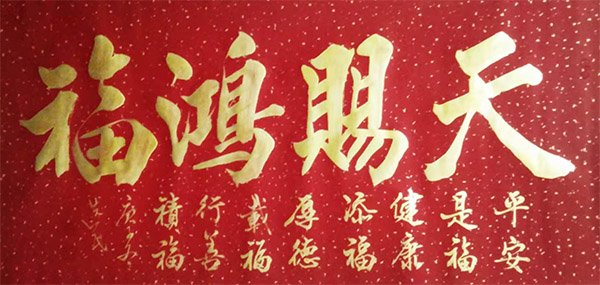 天賜鴻福
平安
是福
健康
添福
厚德
載福
行善
積福